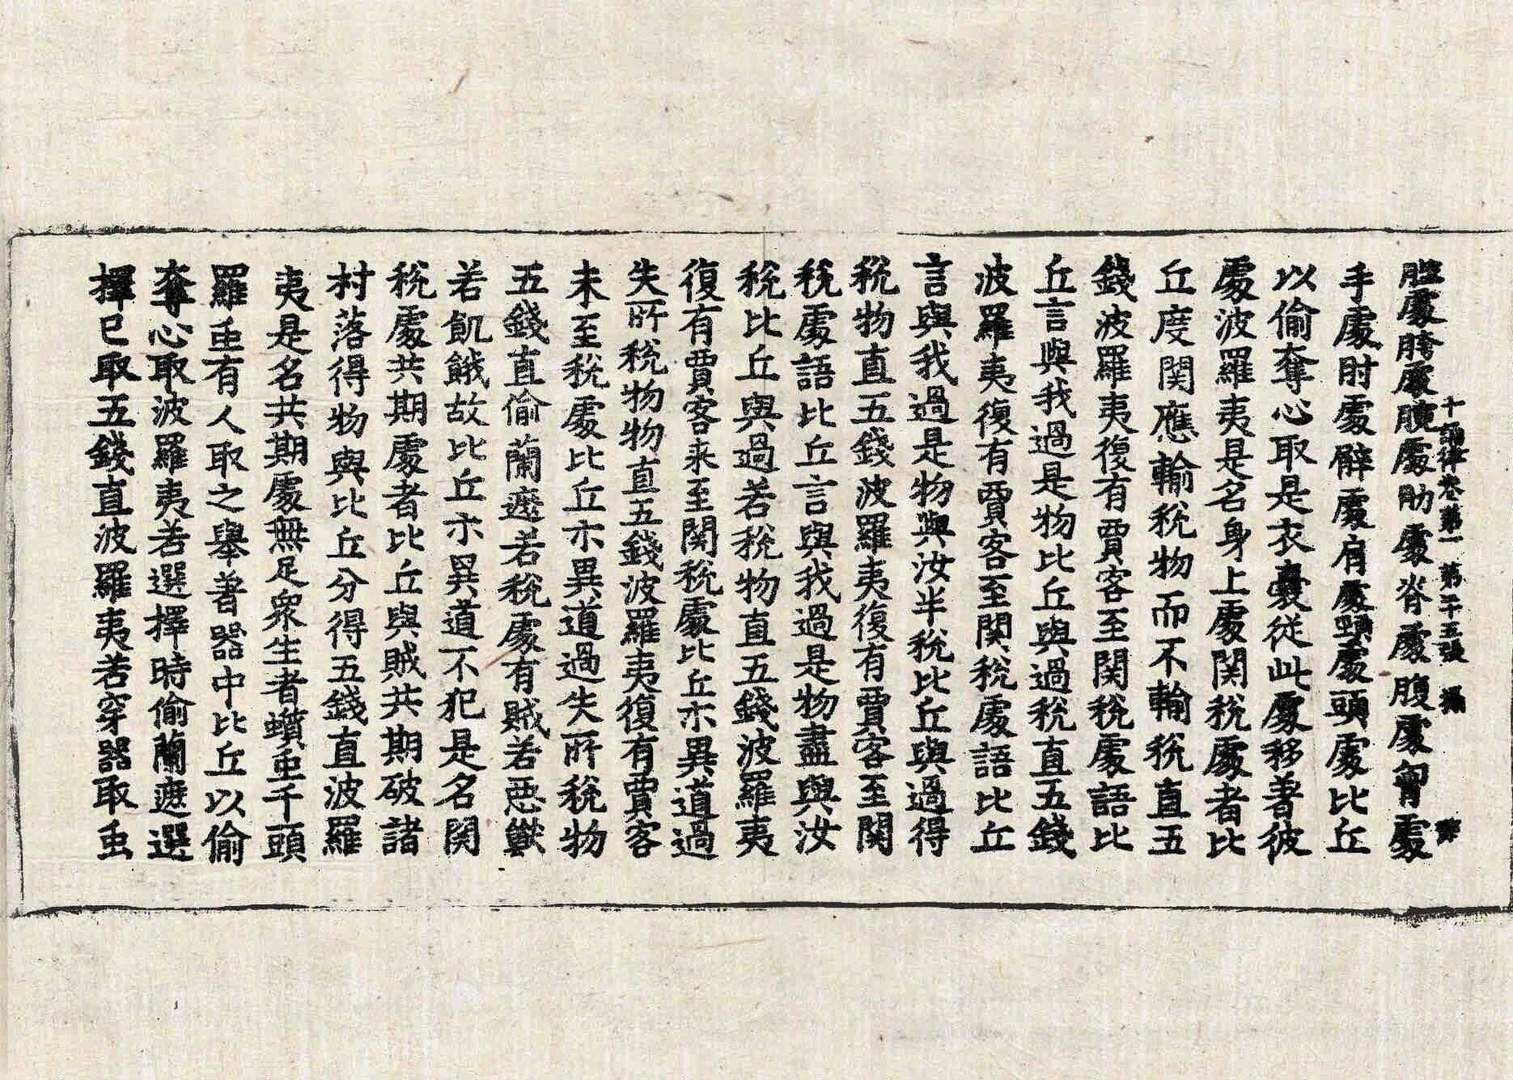 十誦律卷第一 第二十五張 攝
𨄔處胯處腰處肋處脊處腹處胷處
手處肘處臂處肩處頸處頭處比丘
以偷奪心取是衣囊從此處移著彼
處波羅夷是名身上處関稅處者比
丘度関應輸稅物而不輸稅直五
錢波羅夷復有賈客至関稅處語比
丘言與我過是物比丘與過稅直五錢
波羅夷復有賈客至関稅處語比丘
言與我過是物與汝半稅比丘與過得
稅物直五錢波羅夷復有賈客至関
稅處語比丘言與我過是物盡與汝
稅比丘與過若稅物直五錢波羅夷
復有賈客来至関稅處比丘示異道過
失所稅物物直五錢波羅夷復有賈客
未至稅處比丘示異道過失所稅物
五錢直偷蘭遮若稅處有賊若惡獸
若飢餓故比丘示異道不犯是名関
稅處共期處者比丘與賊共期破諸
村落得物與比丘分得五錢直波羅
夷是名共期處無足衆生者蛭虫千頭
羅虫有人取之舉著器中比丘以偷
奪心取波羅夷若選擇時偷蘭遮選
擇已取五錢直波羅夷若穿器取虫